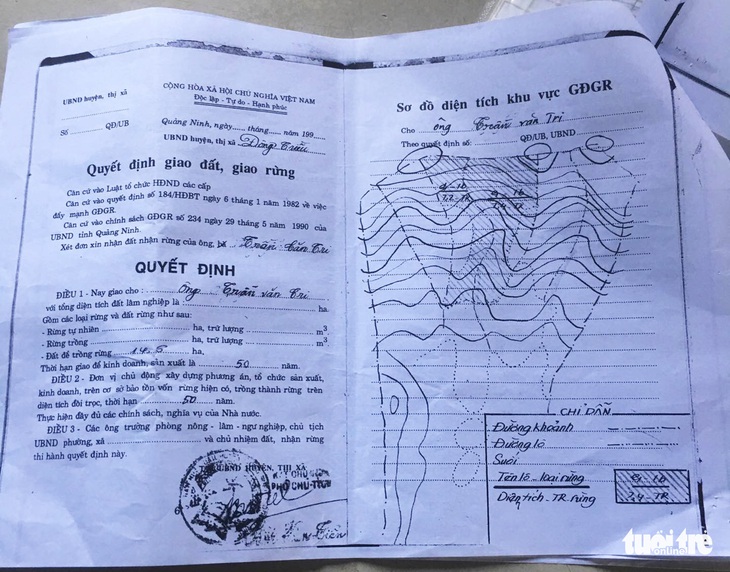 UBND huyện, thị xã
Số QĐ/UB
CỘNG HÒA XÃ HỘI CHỦ NGHĨA VIỆT NAM
Độc lập - Tự do - Hạnh phúc
Quảng Ninh, ngày...... tháng...... năm 199....
UBND huyện, thị xã Đông Triều
Quyết định giao đất, giao rừng
Căn cứ vào Luật tổ chức HĐND các cấp
Căn cứ vào quyết định số 184/HĐBT ngày 6 tháng 1 năm 1982 về việc
đẩy mạnh GĐGR.
Căn cứ vào chính sách GĐGR số 234 ngày 29 tháng 5 năm 1990 của
UBND tỉnh Quảng Ninh.
Xét đơn xin nhận đất nhận rừng của ông, bà Trần Văn Tri
QUYẾT ĐỊNH
ĐIỀU 1 - Nay giao cho: Ông Trần Văn Tri
với tổng diện tích đất lâm nghiệp là ha.
Gồm các loại rừng và đất rừng như sau:
- Rừng tự nhiên ha, trữ lượng m3
- Rừng trồng ha, trữ lượng m3
- Đất để trồng rừng 14.5 ha,
Thời hạn giao để kinh doanh, sản xuất là 50 năm.
ĐIỀU 2 - Đơn vị chủ động xây dựng phương án, tổ chức sản xuất,
kinh doanh, trên cơ sở bảo tồn vốn rừng hiện có, trồng thành rừng trên
diện tích đồi trọc, thời hạn 50 năm.
Thực hiện đầy đủ các chính sách, nghĩa vụ của Nhà nước.
ĐIỀU 3 - Các ông trưởng phòng nông - lâm - ngư nghiệp, chủ tịch
UBND phường, xã và chủ nhiệm đất, nhận rừng
thi hành quyết định này.
UBND HUYỆN, THỊ XÃ
PHÓ CHỦ TỊCH
Sơ đồ diện tích khu vực GĐGR
Cho ông Trần văn Tri
Theo quyết định số: QĐ/UB, UBND
CHỈ DẪN
Đường khoảnh
Đường lô
Suối
Tên lô - loại rừng
Diện tích - TR. rừng
tuổi trẻ
online